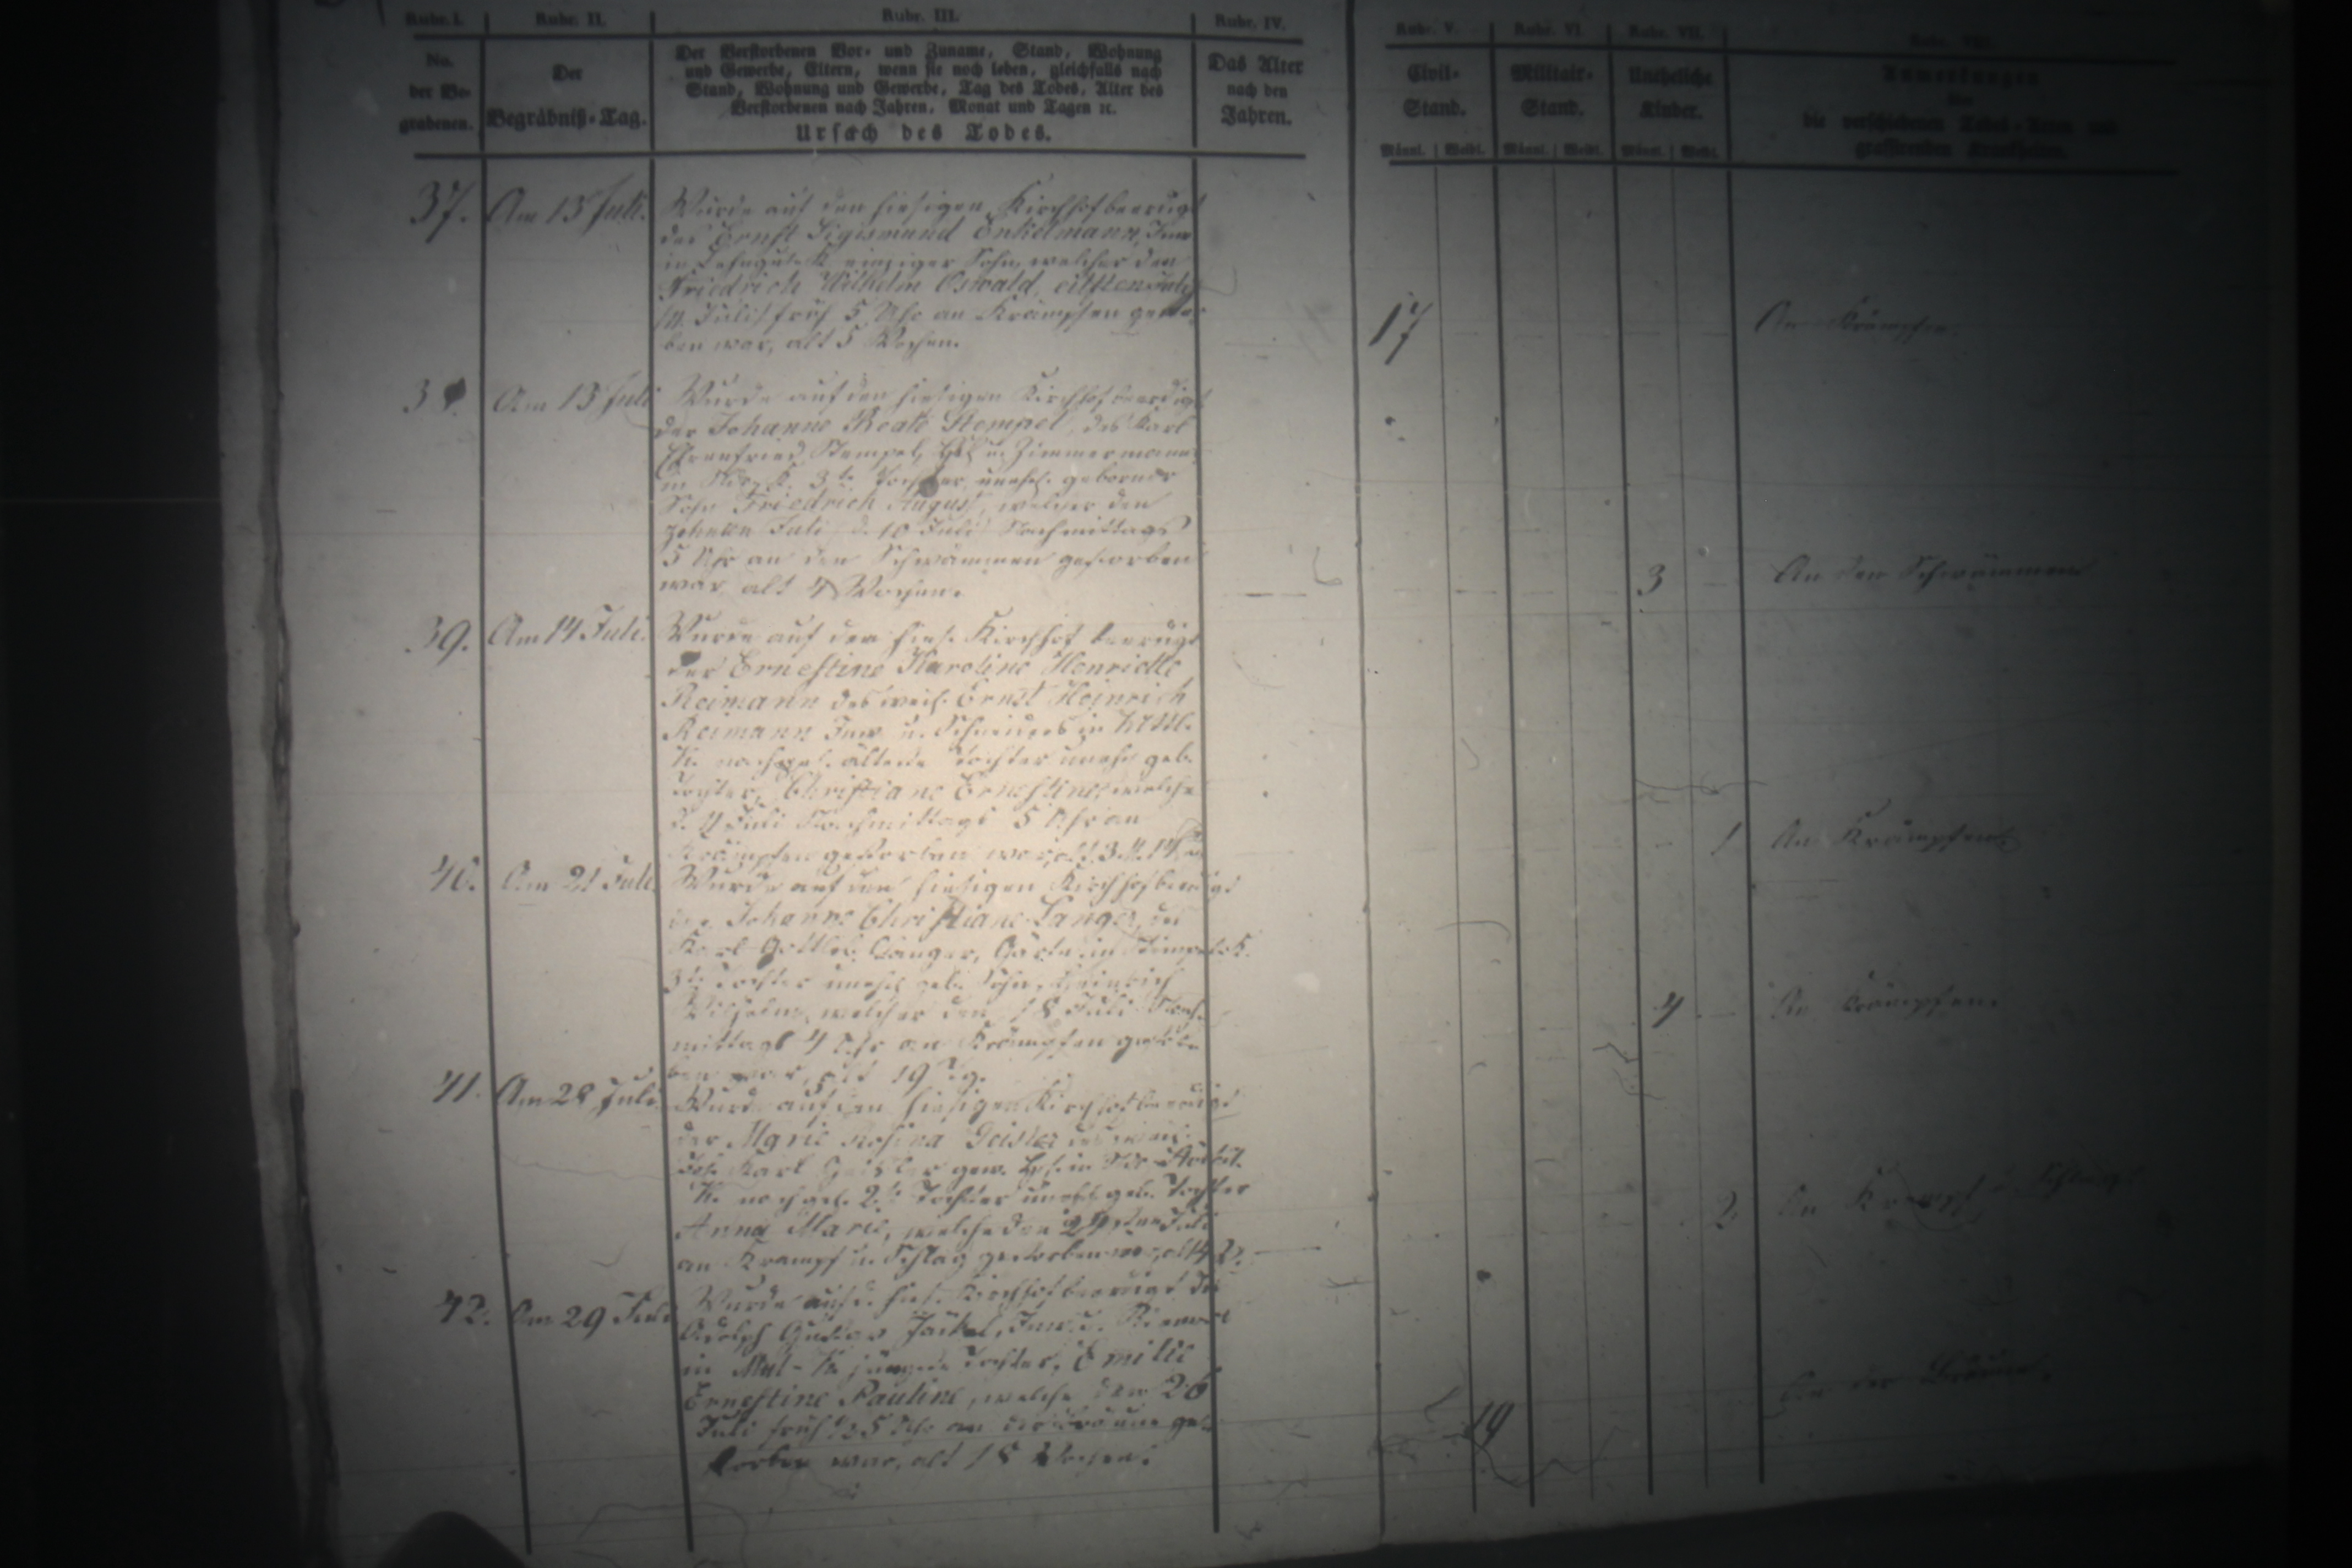 Rubr. I. Rubr. II. Rubr. III. Rubr. IV. Rubr. V. Rubr. VI. Rubr. VII. Rubr. VIII.
No.
der Be-
grabenen.
Der
Begräbniß-Tag.
Der Verstorbenen Vor- und Zuname, Stand, Wohnung
und Gewerbe, Eltern, wenn sie noch leben, gleichfalls nach
Stand, Wohnung und Gewerbe, Tag des Todes, Alter des
Verstorbenen nach Jahren, Monat und Tagen ꝛc.
Ursach des Todes.
Das Alter
nach den
Jahren.
Civil-
Stand.
Militair-
Stand.
Uneheliche
Kinder.
Anmerkungen
die verschiedenen Todes-Arten und
grassirenden Krankheiten.
Männl. Weibl. Männl. Weibl. Männl. Weibl.
37. Am 13 Juli.
Wurde auf den hiesigen Kirchhof beerdigt
des Ernst Sigismund Enkelmann, Inw
in K. einziger Sohn, welcher den
Friedrich Wilhelm Oswald, eilften Juli
11. Juli früh 5 Uhr an Krämpfen gestor-
ben war, alt 5 Wochen.
17
An Krämpfen.
38. Am 13 Juli
Wurde auf den hiesigen Kirchhof beerdigt
der Johanne Beate Stempel, des Karl
Ehrenfried Stempel, u. Zimmermann
in K. 3te Tochter unehl. geborner
Sohn Friedrich August, welcher den
zehnten Juli d. 10 Juli Nachmittags
5 Uhr an den Schwämmen gestorben
war, alt 4 Wochen.
3
An den Schwämmen
39. Am 14 Juli.
Wurde auf den hies. Kirchhof beerdigt
der Ernestine Karoline Henriette
Reimann des weil. Ernst Heinrich
Reimann Inw. u. Schneiders in
K. nachgel. älteste Tochter unehl geb.
Tochter, Christiane Ernestine, welche
Juli Nachmittags 5 Uhr an
Krämpfen gestorben war, alt 3
1
An Krämpfen
40. Am 21 Juli
Wurde auf den hiesigen Kirchhof beerdigt
der Johanne Christiane Langer, des
Karl Gottlieb Langer, Gärtn. in K.
3te Tochter unehl geb. Sohn, Heinrich
Wilhelm, welcher den 18 Juli Nach-
mittags 4 Uhr an Krämpfen gestor-
ben war, alt 19 Tg.
4
An Krämpfen.
41. Am 28 Juli
Wurde auf den hiesigen Kirchhof beerdigt
der Marie Rosina Geisler des weil.
Joh. Karl Geisler gew. in
K. nachgel. 2te Tochter unehl geb. Tochter
Anna Marie, welche den 24sten Juli
an Krampf u Schlag gestorben war, alt
2
An Krampf u. Schlag
42. Am 29 Juli
Wurde auf d. hies. Kirchhof beerdigt des
Adolph Gustav Jäckel, Inw. u.
in K. jüngste Tochter, Emilie
Ernestine Pauline, welche den 26
Juli früh 5 Uhr an der Bräune ges-
torben war, alt 18 Wochen.
19
An der Bräune.